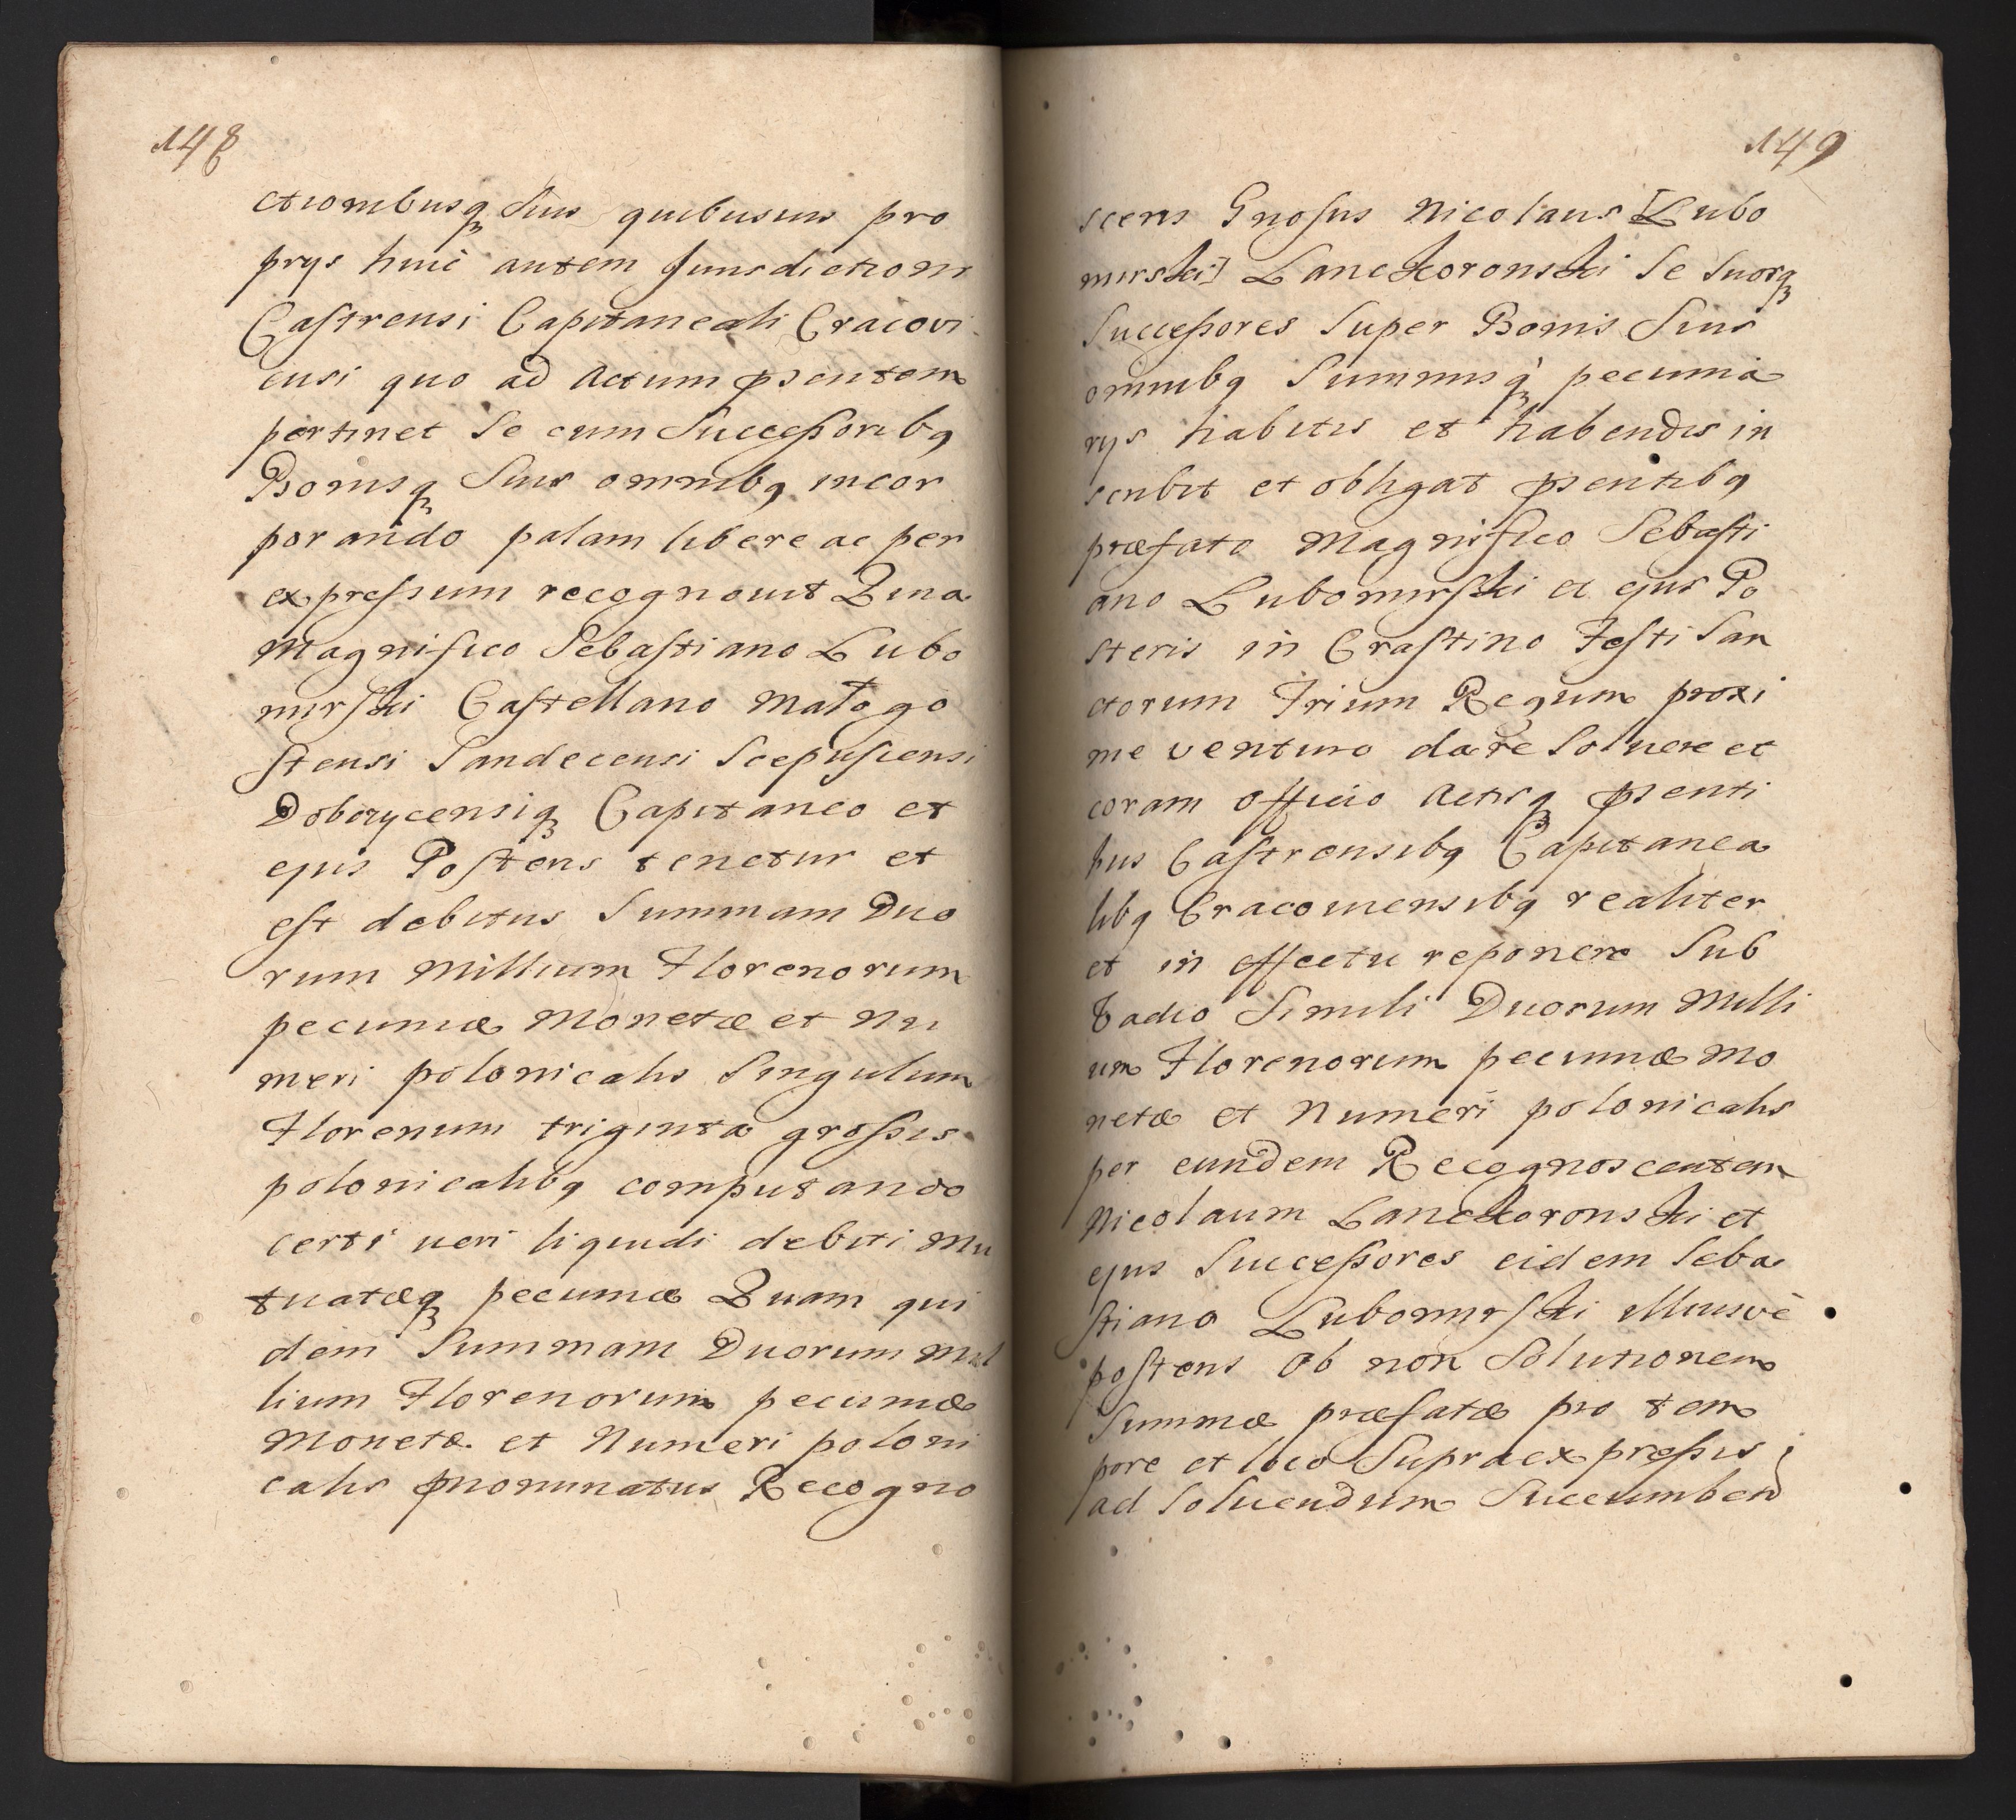 148
ctionibusq₃ suis quibusuis pro
prys huic autem Jurisdictioni
Castrensi Capitaneali Cracovi
ensi quo ad Actum pꝛsentem
pertinet Se cum Successoribq
Bonisq₃ Suis omnibq incor
porando palam libere ac per
expressum recognouit Quia
Magnifico Sebastiano Lubo
mirski Castellano Mało go
stensi Sandecensi Scepusiensi
Dobczycensiq₃ Capitaneo et
ejus Posteris tenetur et
est debitus Summam Duo
rum Millium Florenorum
pecuniæ Monetæ et Nu
meri polonicalis Singulum
Florenum triginta grossis
polonicalibq computando
certi ueri liquidi debiti Mu
tuatæq₃ pecuniæ Quam qui
dem Summam Duorum Mil
lium Florenorum pecuniæ
Monetæ et Numeri poloni
calis pꝛnominatus Recogno
149
scens Gnosus Nicolaus [Lubo
mirski] Lanckoronski Se Suosq₃
Successores Super Bonis Suis
omnibq Summisq₃ pecunia
rys habitis et habendis in
scribit et obligat pꝛsentibq
præfato Magnifico Sebasti
ano Lubomirski et ejus Po
steris in Crastino Festi San
ctorum Trium Regum proxi
me venturo dare Soluere et
coram officio Actisq₃ pꝛsenti
bus Castrensibq Capitanea
libq Cracouiensibq realiter
et in effectu reponere Sub
Vadio Simili Duorum Milli
um Florenorum pecuniæ Mo
netæ et Numeri polonicalis
per eundem Recognoscentem
Nicolaum Lanckoronski et
ejus Successores eidem Seba
stiano Lubomirski illiusvè
posteris ob non Solutionem
Summæ præfatæ pro tem
pore et loco Supra expressis
ad Soluendum Succumben͠d